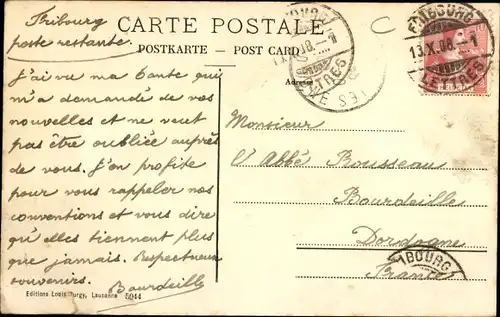 Fribourg
poste restante.
CARTE POSTALE
POSTKARTE – POST CARD
Adresse
J'ai vu ma tante qui
m'a demandé de vos
nouvelles et ne veut
pas être oubliée auprès
de vous. J'en profite
pour vous rappeler nos
conventions et vous dire
qu'elles tiennent plus
que jamais. Respectueux
souvenirs.
Bourdeille
Editions Louis Burgy, Lausanne 5944
FRIBOURG
13.X.08.–1
LETTRES
Monsieur
l'Abbé Rousseau
Bourdeille
Dordogne
France